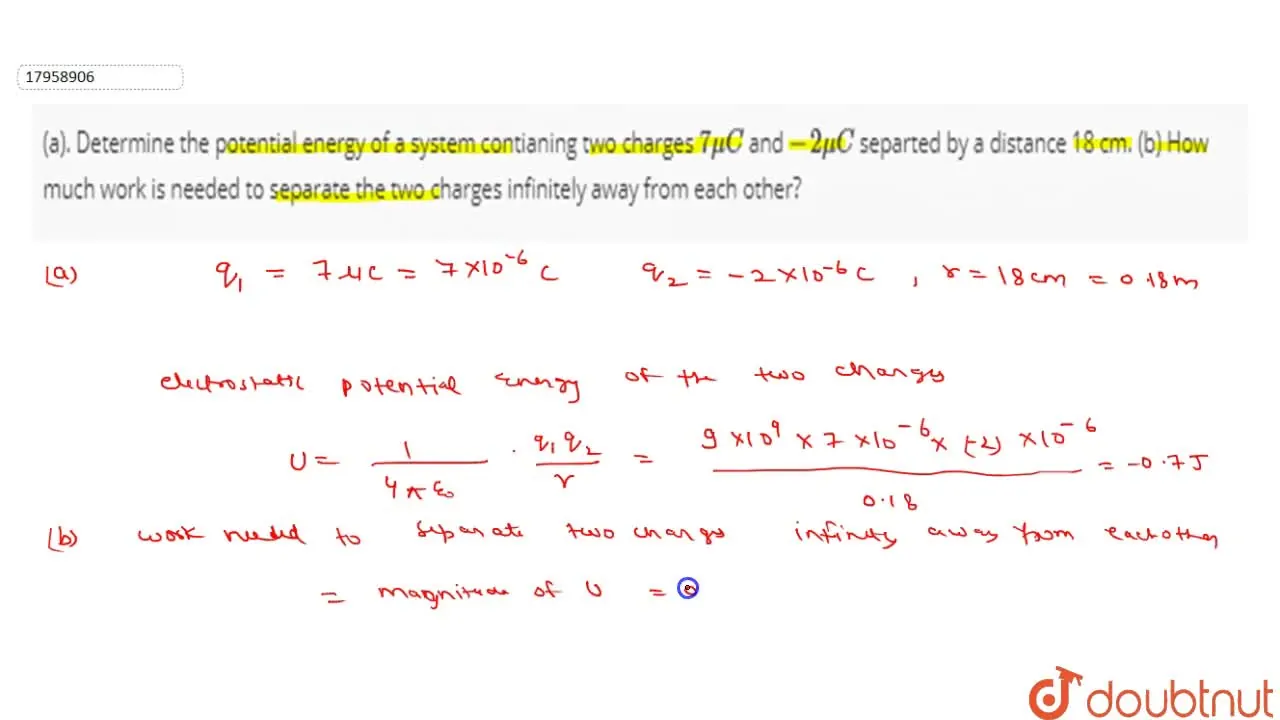 17958906
(a). Determine the potential energy of a system contianing two charges 7μC and −2μC separted by a distance 18 cm. (b) How
much work is needed to separate the two charges infinitely away from each other?
(a) q₁ = 7 μC = 7×10⁻⁶ C q₂ = −2×10⁻⁶ C , r = 18 cm = 0.18 m
electrostatic potential energy of the two charges
U = 1/4πε₀ · q₁q₂/r = 9×10⁹ × 7 ×10⁻⁶ × (−2) ×10⁻⁶/0.18 = −0.7 J
(b) work needed to separate two charges infinitely away from each other
= magnitude of U = 0
doubtnut